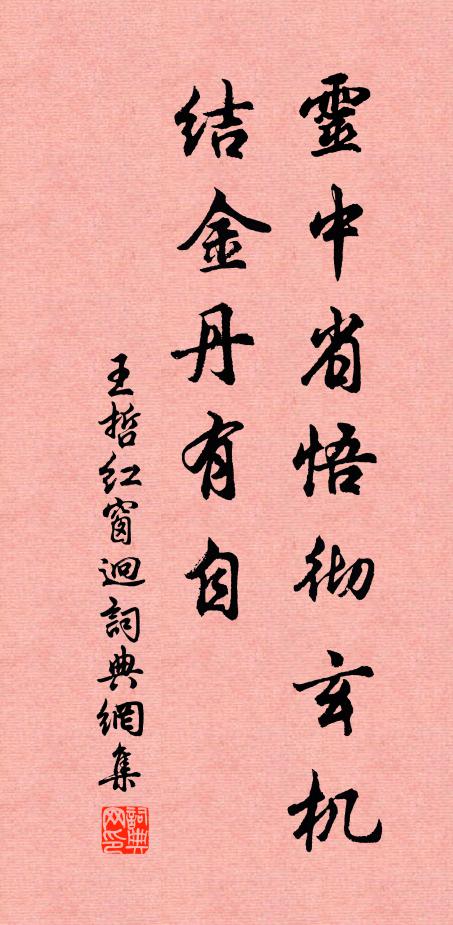 靈中省悟彻玄机
结金丹有自
王哲红窗迥詞典網集
詞典网印